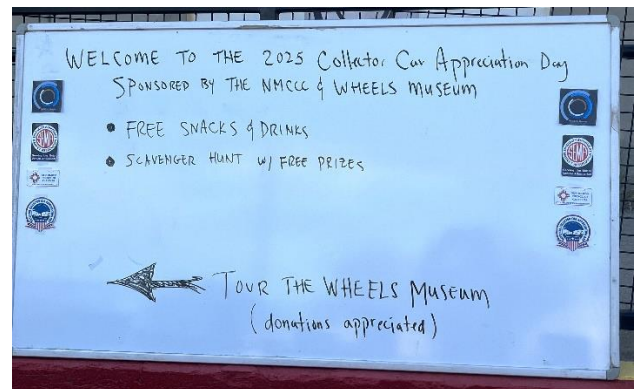 WELCOME TO THE 2025 Collector Car Appreciation Day
SPONSORED BY THE NMCCC & WHEELS MUSEUM
• FREE SNACKS & DRINKS
• SCAVENGER HUNT W/ FREE PRIZES
TOUR THE WHEELS MUSEUM
(donations appreciated)